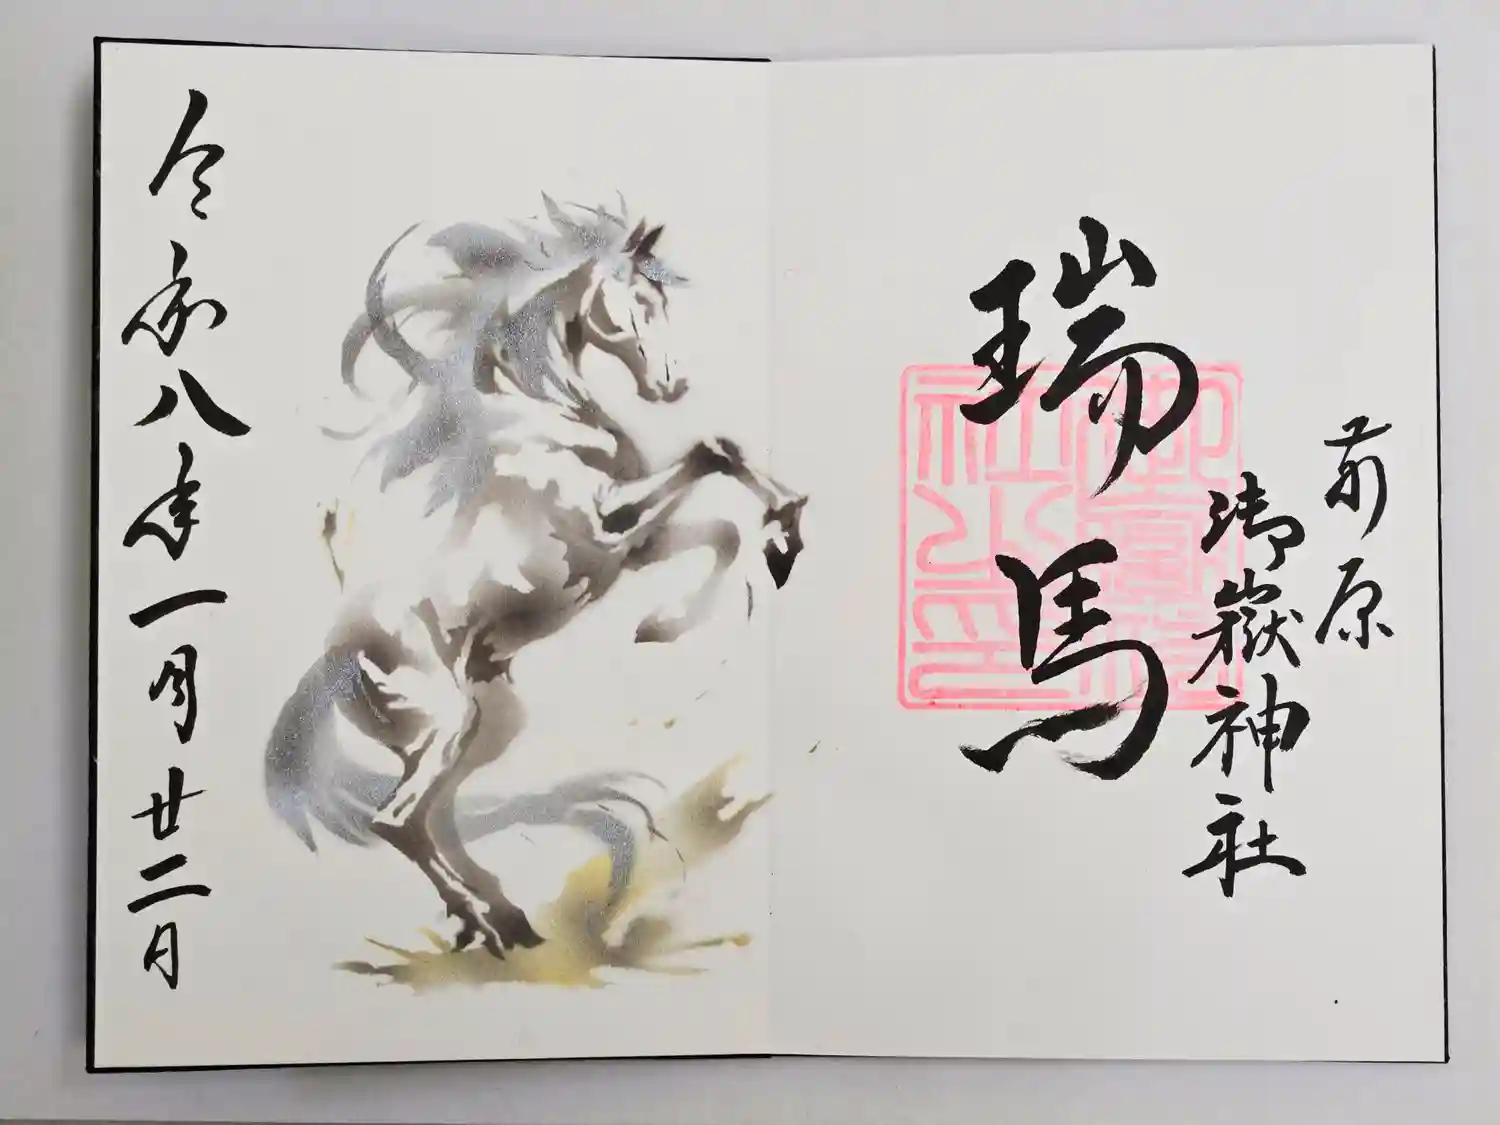 前原
御嶽神社
瑞馬
令和八年一月廿二日